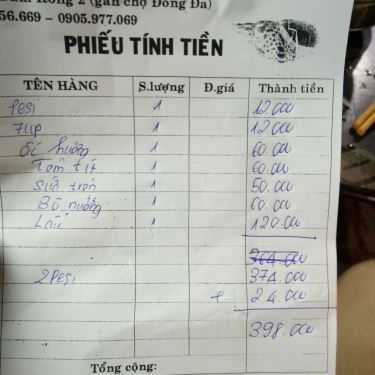 2 (gần chợ Đống Đa)
56.669 - 0905.977.069
PHIẾU TÍNH TIỀN
TÊN HÀNG S.lượng Đ.giá Thành tiền
Pesi 1 12.00
7up 1 12.00
ốc hương 1 60.00
Tôm tít 1 60.00
Sứa trộn 1 50.00
Bò nướng 1 60.00
Lẩu 1 120.00
364.00
374.00
2 Pesi + 24.00
398.00
Tổng cộng: